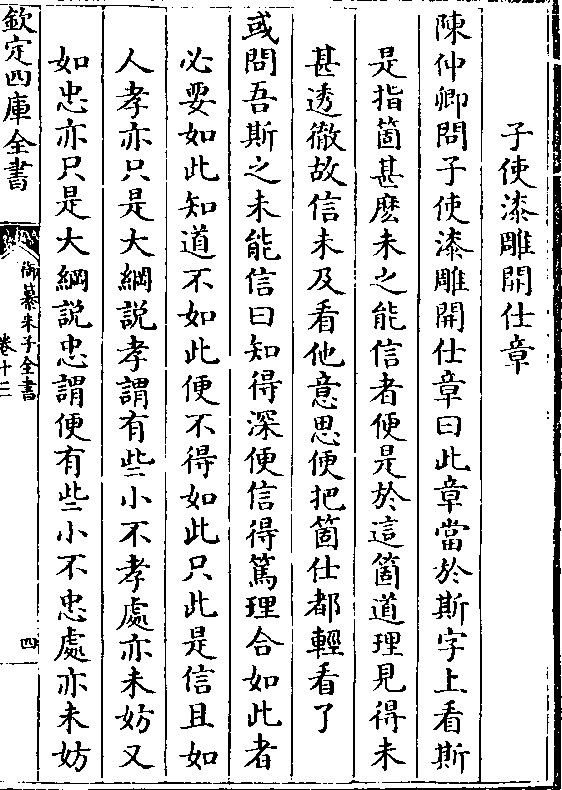 子使漆雕開仕章
陳仲卿問子使漆雕開仕章曰此章當於斯字上看斯
是指箇甚麽未之能信者便是於這箇道理見得未
甚透徹故信未及看他意思便把箇仕都輕看了
或問吾斯之未能信曰知得深便信得篤理合如此者
必要如此知道不如此便不得如此只此是信且如
人孝亦只是大綱説孝謂有些小不孝處亦未妨又
如忠亦只是大綱説忠謂便有些小不忠處亦未妨
欽定四庫全書
御纂朱子全書
卷十三
四